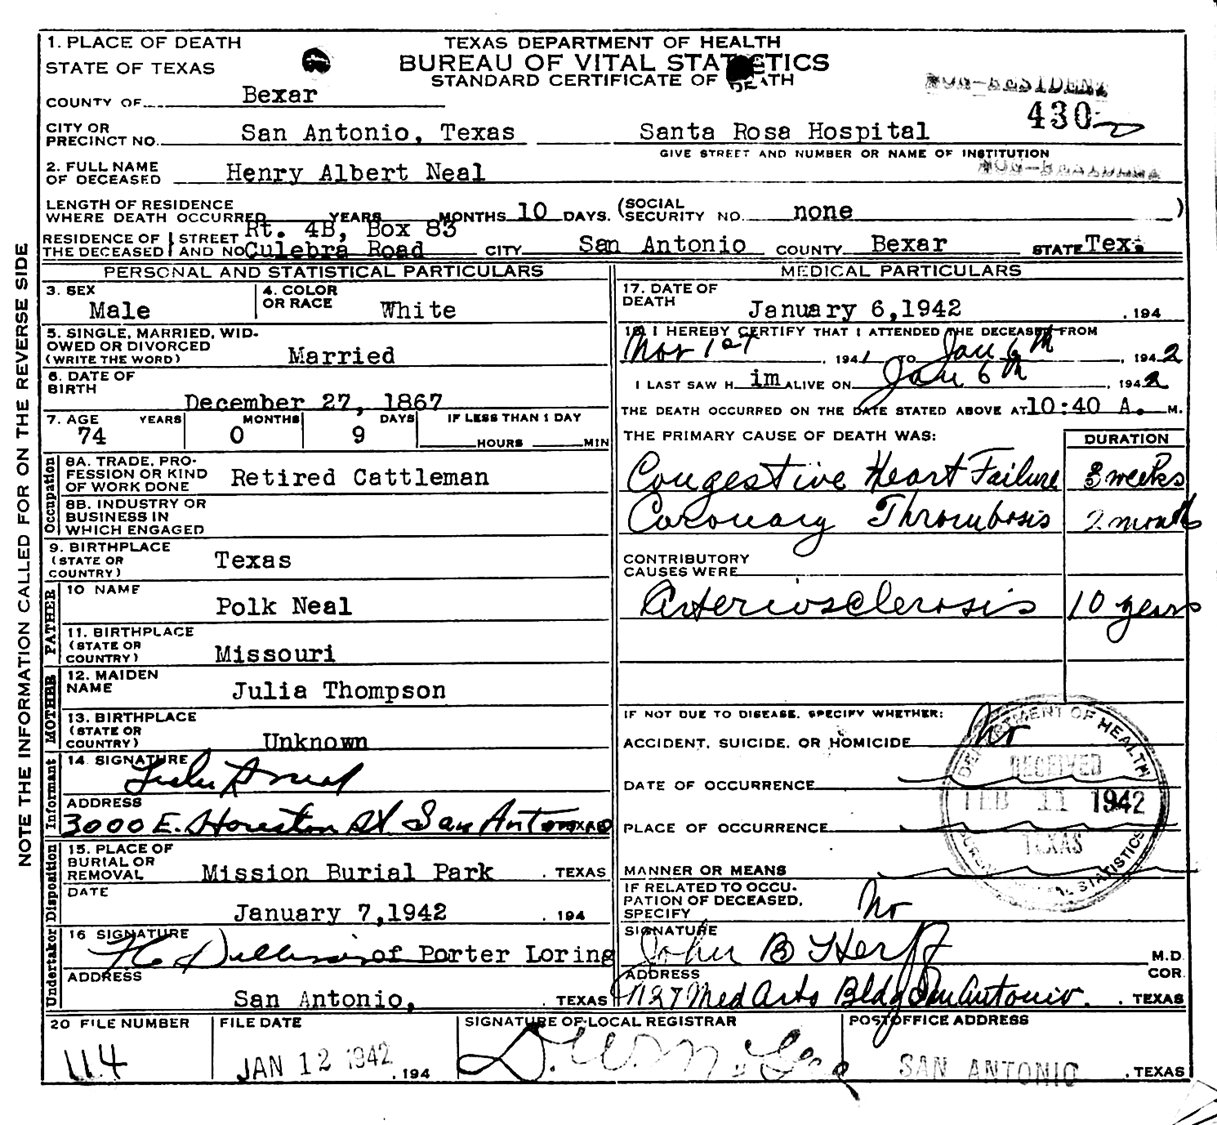 1. PLACE OF DEATH
STATE OF TEXAS
TEXAS DEPARTMENT OF HEALTH
BUREAU OF VITAL STATISTICS
STANDARD CERTIFICATE OF DEATH
NON-RESIDENT
430
COUNTY OF Bexar
CITY OR PRECINCT NO. San Antonio, Texas Santa Rosa Hospital
GIVE STREET AND NUMBER OR NAME OF INSTITUTION
NON-RESIDENT
2. FULL NAME OF DECEASED Henry Albert Neal
LENGTH OF RESIDENCE WHERE DEATH OCCURRED YEARS MONTHS 10 DAYS. (SOCIAL SECURITY NO. none )
RESIDENCE OF THE DECEASED STREET AND NO. Rt. 4B, Box 83 Culebra Road CITY San Antonio COUNTY Bexar STATE Tex.
PERSONAL AND STATISTICAL PARTICULARS
3. SEX Male
4. COLOR OR RACE White
5. SINGLE, MARRIED, WIDOWED OR DIVORCED (WRITE THE WORD) Married
6. DATE OF BIRTH December 27, 1867
7. AGE YEARS 74 MONTHS 0 DAYS 9 IF LESS THAN 1 DAY HOURS MIN
Occupation
8A. TRADE, PROFESSION OR KIND OF WORK DONE Retired Cattleman
8B. INDUSTRY OR BUSINESS IN WHICH ENGAGED
9. BIRTHPLACE (STATE OR COUNTRY) Texas
FATHER
10 NAME Polk Neal
11. BIRTHPLACE (STATE OR COUNTRY) Missouri
MOTHER
12. MAIDEN NAME Julia Thompson
13. BIRTHPLACE (STATE OR COUNTRY) Unknown
Informant
14. SIGNATURE
ADDRESS 3000 E. Houston St San Antonio TEXAS
Disposition
15. PLACE OF BURIAL OR REMOVAL Mission Burial Park . TEXAS
DATE January 7, 1942 . 194
Undertaker
16 SIGNATURE of Porter Loring
ADDRESS San Antonio, . TEXAS
MEDICAL PARTICULARS
17. DATE OF DEATH January 6, 1942 . 194
18. I HEREBY CERTIFY THAT I ATTENDED THE DECEASED FROM
Nov 1st , 1941 TO Jan 6th , 1942
I LAST SAW H im ALIVE ON Jan 6th , 1942
THE DEATH OCCURRED ON THE DATE STATED ABOVE AT 10:40 A. M.
THE PRIMARY CAUSE OF DEATH WAS: DURATION
Congestive Heart Failure 3 weeks
Coronary Thrombosis 2 months
CONTRIBUTORY CAUSES WERE
Arteriosclerosis 10 years
IF NOT DUE TO DISEASE, SPECIFY WHETHER:
ACCIDENT, SUICIDE, OR HOMICIDE No
DATE OF OCCURRENCE
PLACE OF OCCURRENCE
MANNER OR MEANS
DEPARTMENT OF HEALTH
RECEIVED
FEB 11 1942
TEXAS
BUREAU OF VITAL STATISTICS
IF RELATED TO OCCUPATION OF DECEASED, SPECIFY No
SIGNATURE John B Herff M.D. COR.
ADDRESS 1127 Med Arts Bldg San Antonio . TEXAS
20 FILE NUMBER 114
FILE DATE JAN 12 1942 . 194
SIGNATURE OF LOCAL REGISTRAR
POSTOFFICE ADDRESS SAN ANTONIO . TEXAS
NOTE THE INFORMATION CALLED FOR ON THE REVERSE SIDE